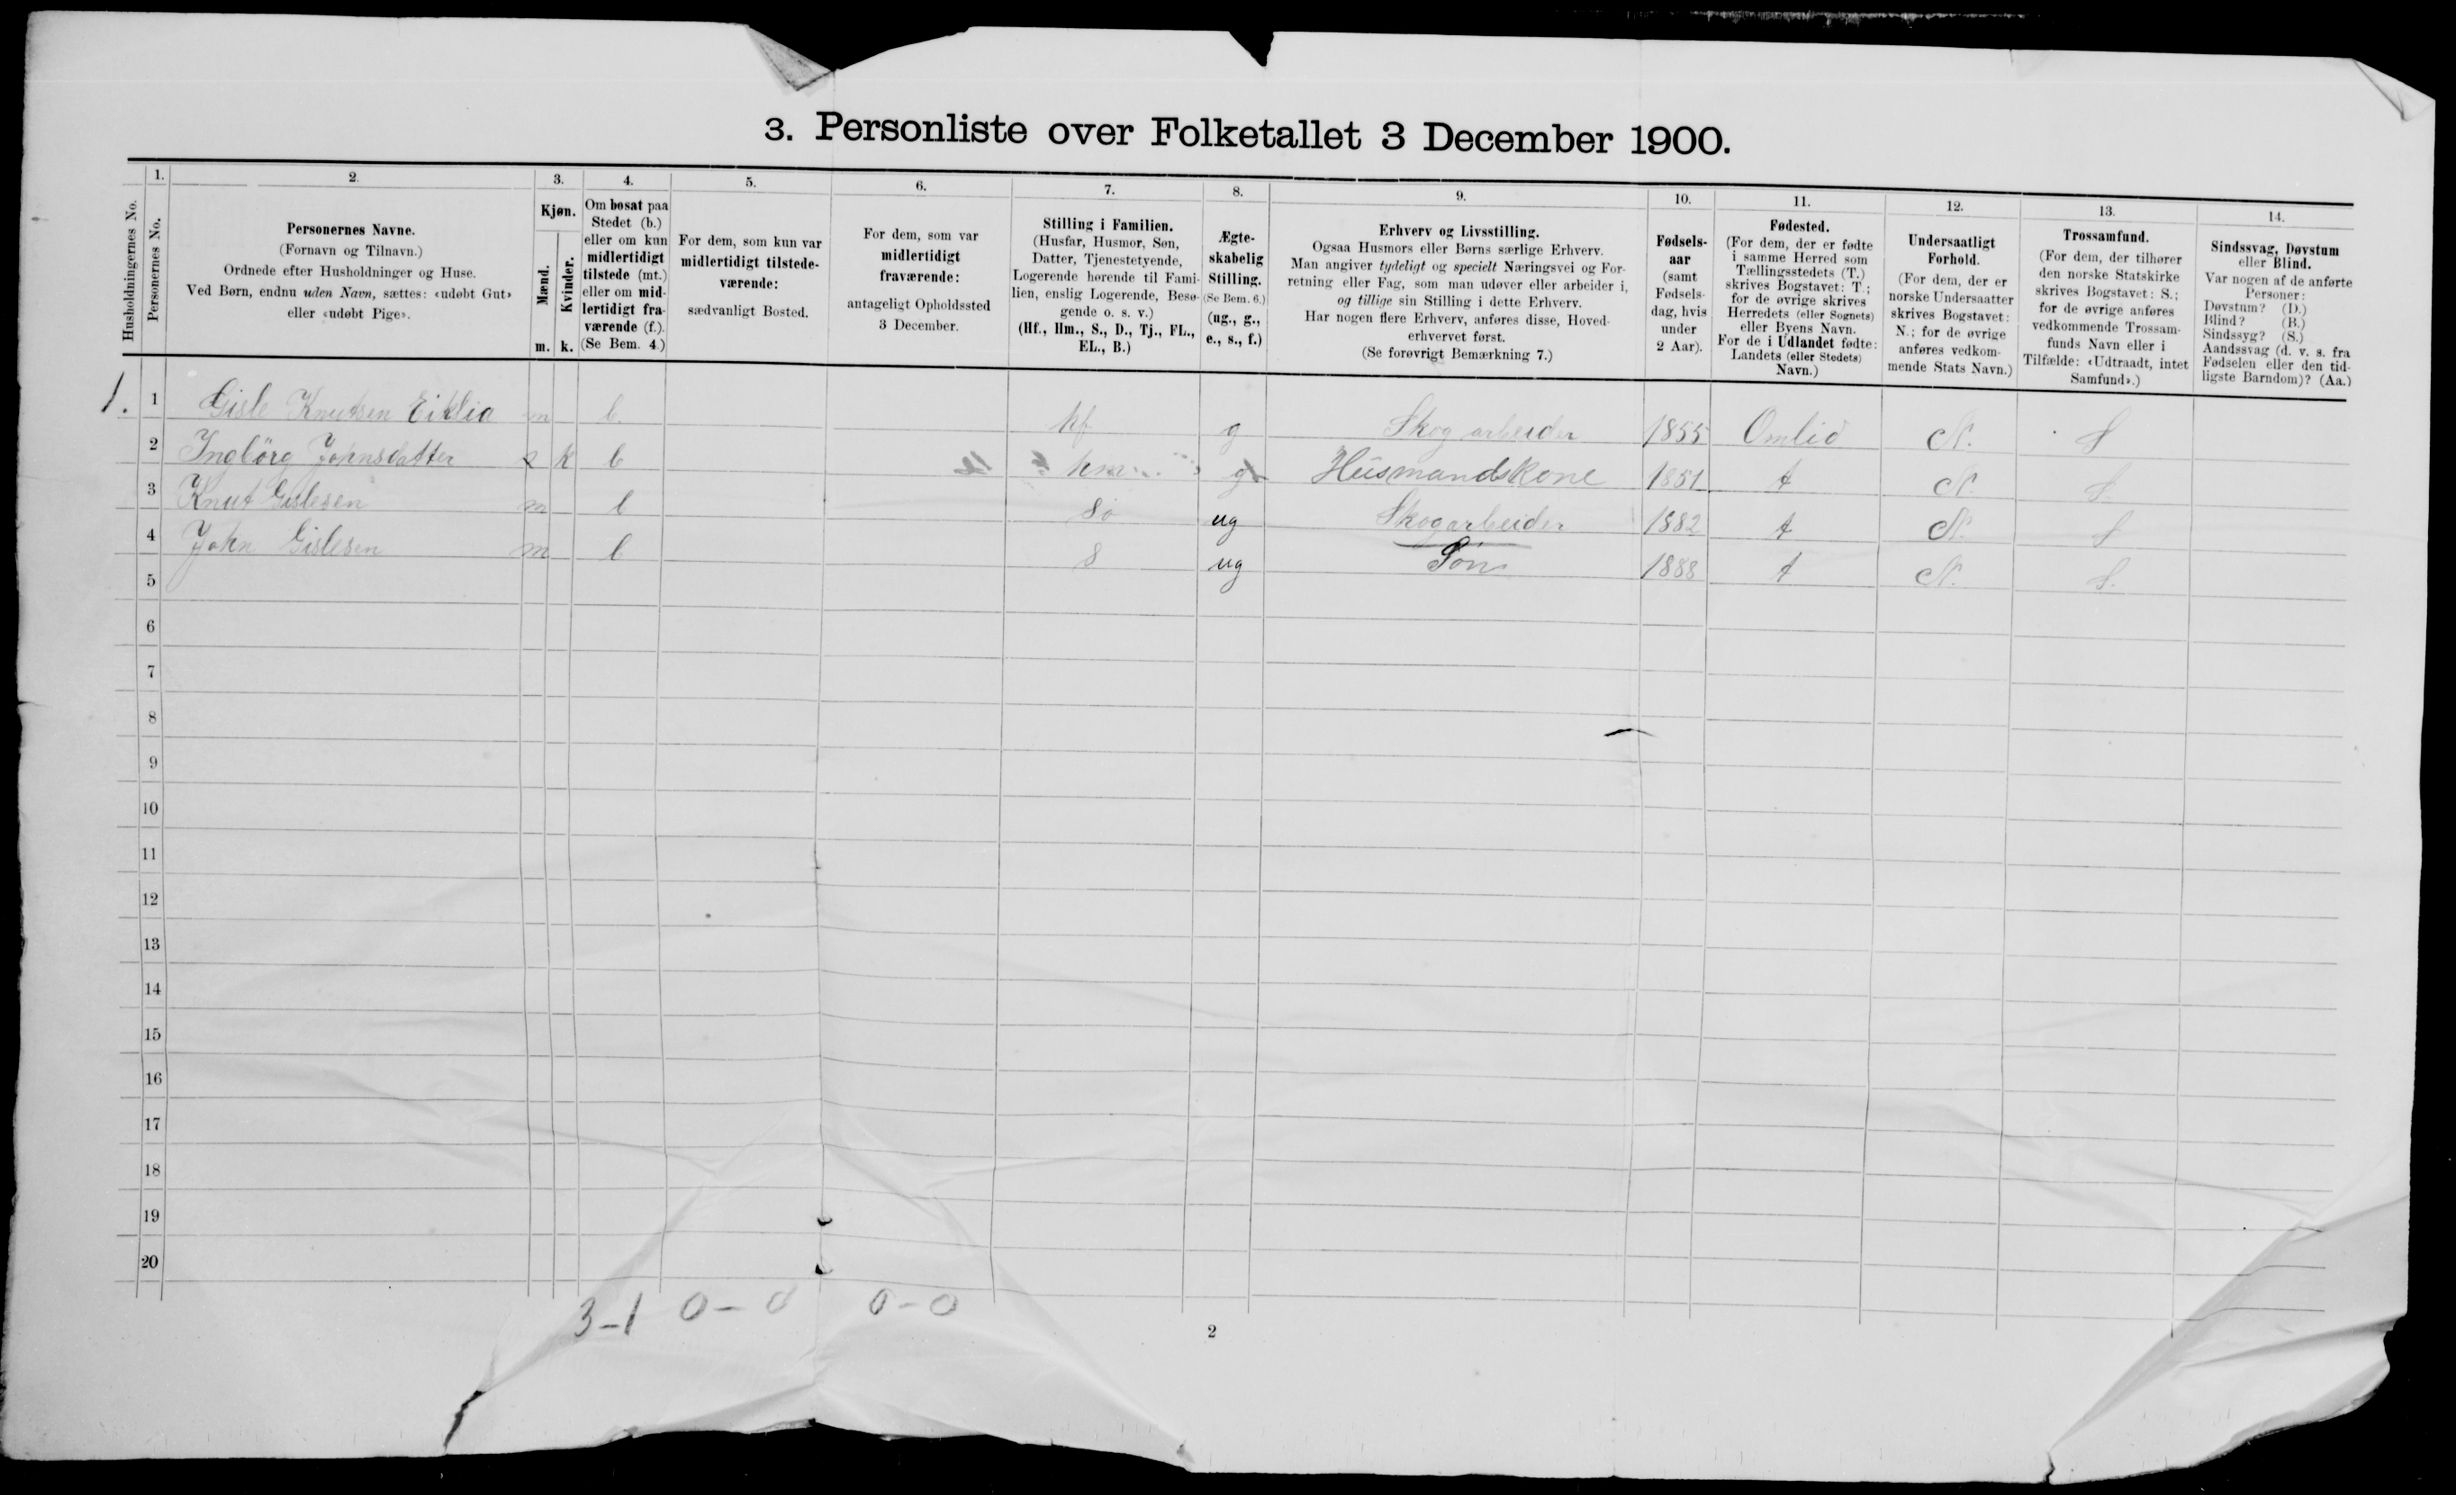 3. Personliste over Folketallet 3 December 1900.
1. 2. 3. 4. 5. 6. 7. 8. 9. 10. 11. 12. 13. 14.
Husholdningernes No.
Personernes No.
Personernes Navne.
(Fornavn og Tilnavn.)
Ordnede efter Husholdninger og Huse.
Ved Børn, endnu uden Navn, sættes: «udøbt Gut»
eller «udøbt Pige».
Kjøn.
Mænd.
Kvinder.
m. k.
Om bosat paa
Stedet (b.)
eller om kun
midlertidigt
tilstede (mt.)
eller om mid-
lertidigt fra-
værende (f.).
(Se Bem. 4.)
For dem, som kun var
midlertidigt tilstede-
værende:
sædvanligt Bosted.
For dem, som var
midlertidigt
fraværende:
antageligt Opholdssted
3 December.
Stilling i Familien.
(Husfar, Husmor, Søn,
Datter, Tjenestetyende,
Logerende hørende til Fami-
lien, enslig Logerende, Besø-
gende o. s. v.)
(Hf., Hm., S., D., Tj., FL.,
EL., B.)
Ægte-
skabelig
Stilling.
(Se Bem. 6.)
(ug., g.,
e., s., f.)
Erhverv og Livsstilling.
Ogsaa Husmors eller Børns særlige Erhverv.
Man angiver tydeligt og specielt Næringsvei og For-
retning eller Fag, som man udøver eller arbeider i,
og tillige sin Stilling i dette Erhverv.
Har nogen flere Erhverv, anføres disse, Hoved-
erhvervet først.
(Se forøvrigt Bemærkning 7.)
Fødsels-
aar
(samt
Fødsels-
dag, hvis
under
2 Aar).
Fødested.
(For dem, der er fødte
i samme Herred som
Tællingsstedets (T.)
skrives Bogstavet: T.;
for de øvrige skrives
Herredets (eller Sognets)
eller Byens Navn.
For de i Udlandet fødte:
Landets (eller Stedets)
Navn.)
Undersaatligt
Forhold.
(For dem, der er
norske Undersaatter
skrives Bogstavet:
N.; for de øvrige
anføres vedkom-
mende Stats Navn.)
Trossamfund.
(For dem, der tilhører
den norske Statskirke
skrives Bogstavet: S.;
for de øvrige anføres
vedkommende Trossam-
funds Navn eller i
Tilfælde: «Udtraadt, intet
Samfund».)
Sindssvag, Døvstum
eller Blind.
Var nogen af de anførte
Personer:
Døvstum? (D.)
Blind? (B.)
Sindssyg? (S.)
Aandssvag (d. v. s. fra
Fødselen eller den tid-
ligste Barndom)? (Aa.)
1. 1 Gisle Knutsen Eiklia m b. hf g Skogarbeider 1855 Omlid N. S
2 Ingbörg Johnsdatter k b hm g Husmandskone 1851 t N. S.
3 Knut Gislesen m b s ug Skogarbeider 1882 t N. S
4 John Gislesen m b s ug Søn 1888 t N. S.
5
6
7
8
9
10
11
12
13
14
15
16
17
18
19
20
3-1 0-0 0-0
2